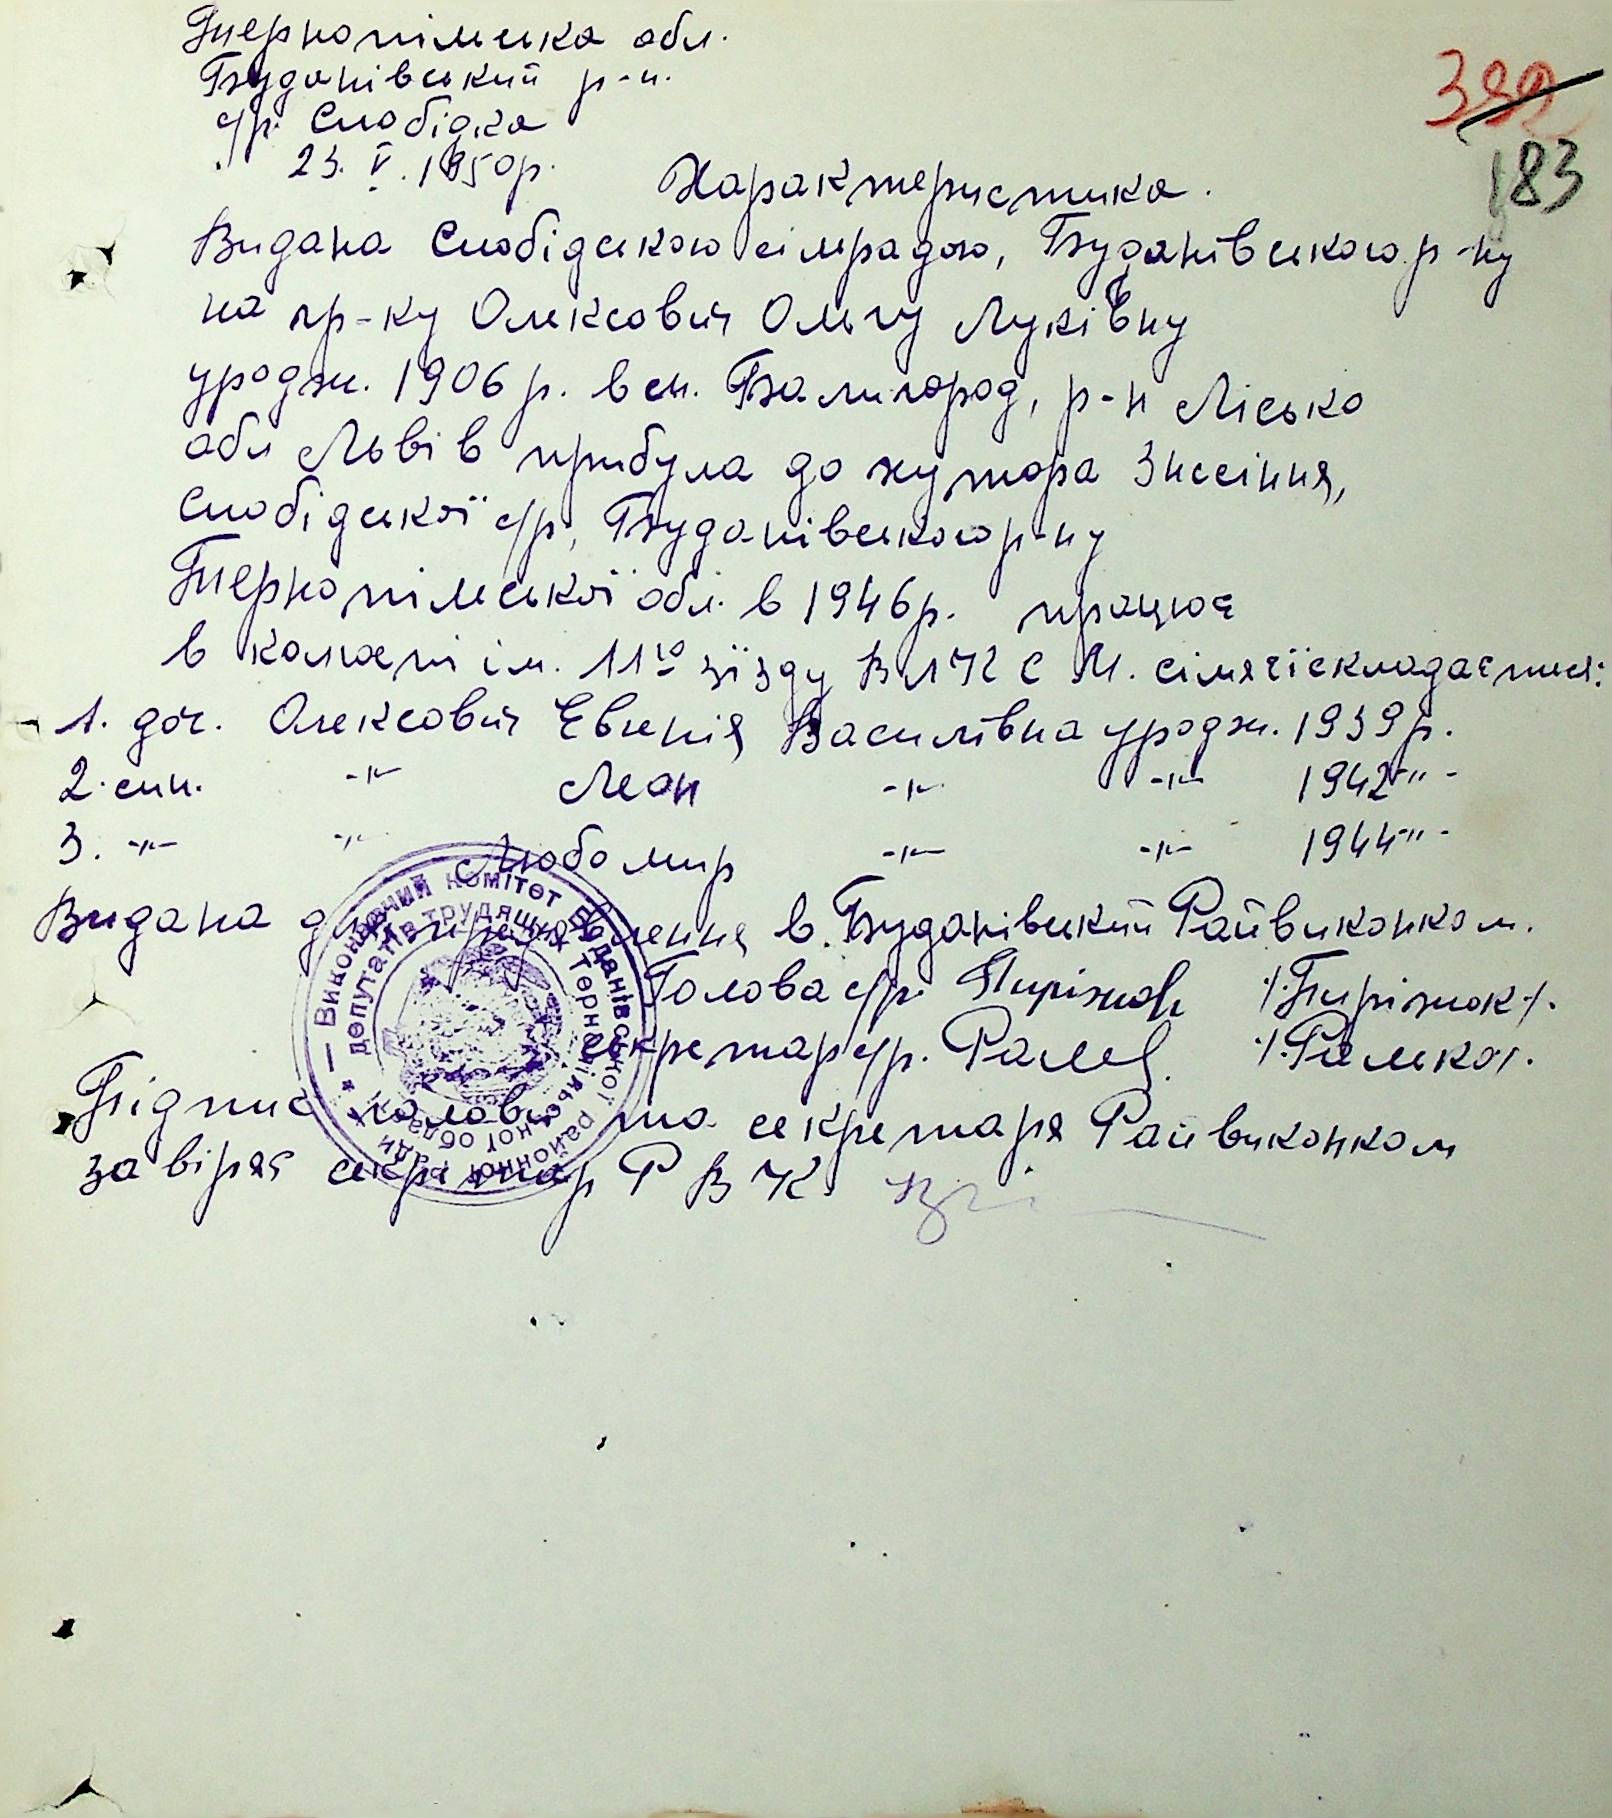 Тернопільська обл.
Буданівський р-н.
с/р. Слобідка
23. V. 1950р.
399
183
Характеристика.
Видана Слобідською сілрадою, Буданівського р-ну
на гр-ку Олексович Ольгу Луківну
уродж. 1906 р. в см. Балигород, р-н Лісько
обл Львів прибула до хутора Знесіння,
Слобідської с/р, Буданівського р-ну
Тернопільської обл. в 1946 р. працює
в колгоспі ім. 11го зїзду ВЛКСМ. сімя її складається:
1. доч. Олексович Евгенія Василівна уродж. 1939 р.
2. син. -"- Леон -"- -"- 1942 -"-
3. -"- -"- Любомир -"- -"- 1944 -"-
Видана для предявлення в Буданівський Райвиконком.
Голова с/р. Пиріжок /.Пиріжок/.
Секретар с/р. /.Ралько/.
Підпис голови та секретаря Райвиконком
завіряє секретар РВК
Виконавчий комітет Буданівської районної ради
депутатів трудящих Тернопільської області